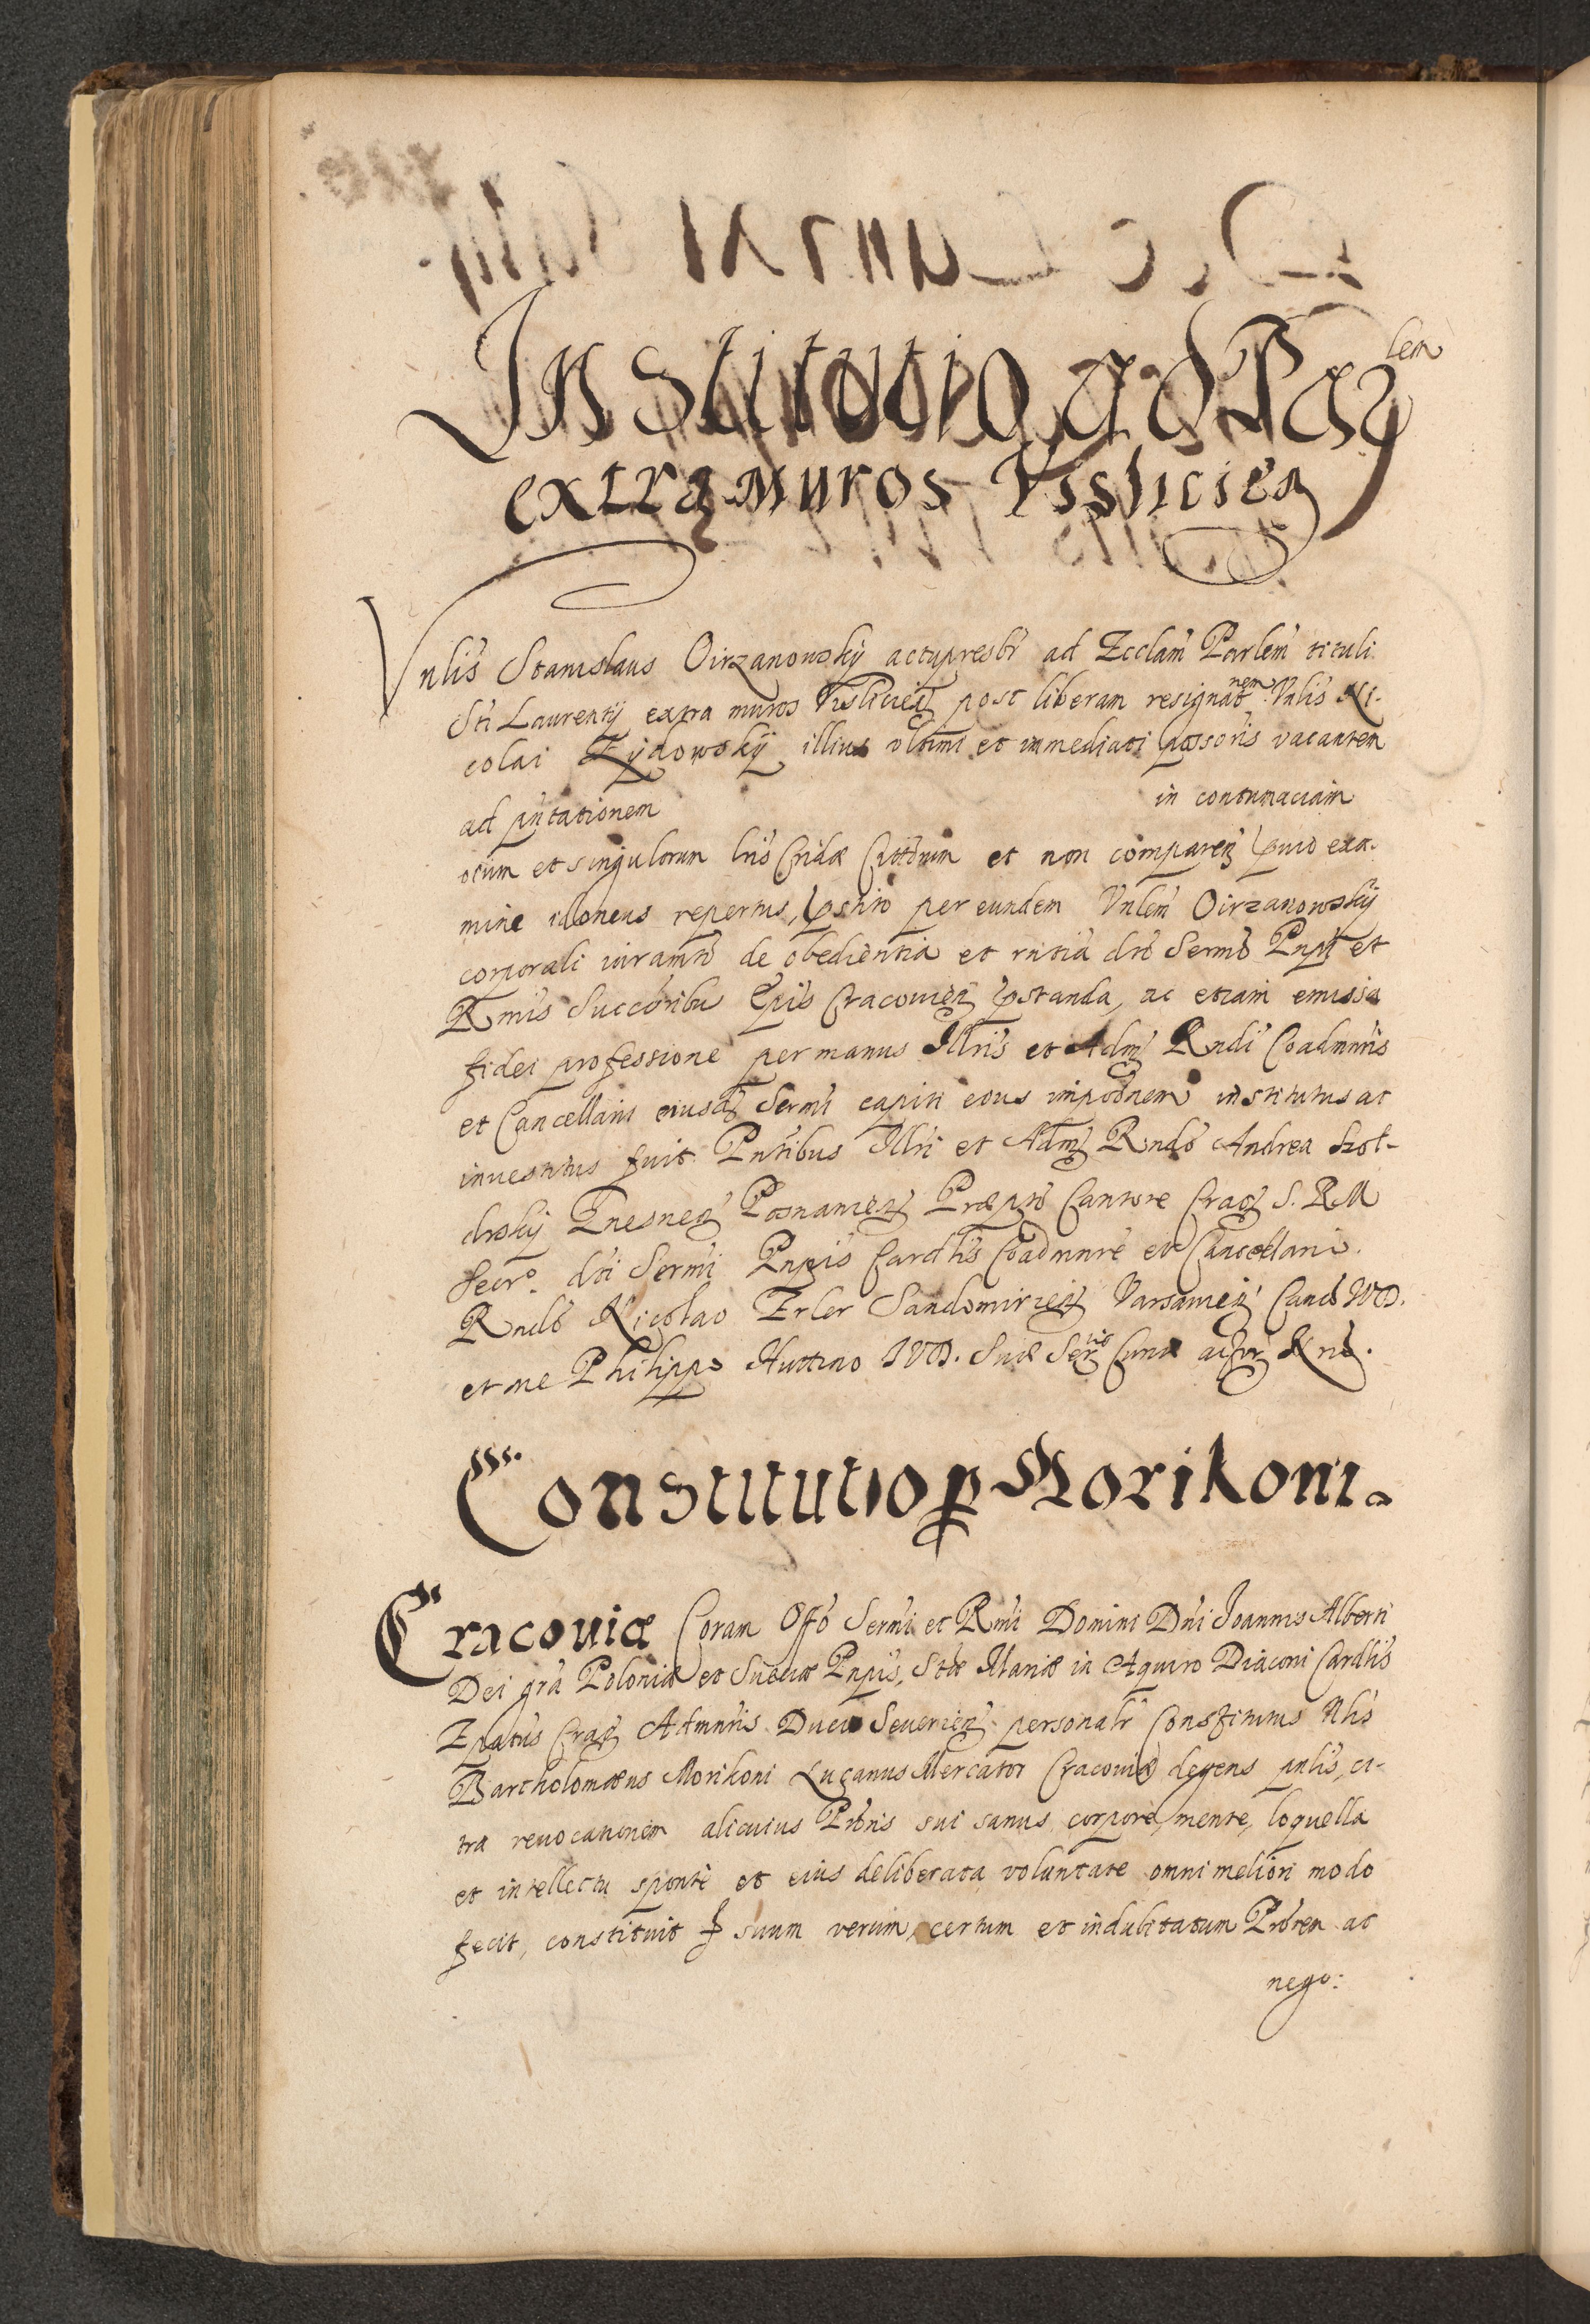 Institutio ad Par lem
extra muros Vislicien
Vnlis Stanislaus Oirzanowsky actupresbr ad Ecclam Parlem tituli
Sti Laurentij extra muros Vislicien post liberam resignatnem Vnlis Ni-
colai Zydowskij illius vltimi et immediati possoris vacantem
ad pntationem in contumaciam
oium et singulorum lris Cridæ Cittorum et non comparen pvio exa-
mine idoneus repertus, pstito per eundem Vnlem Oirzanowskij
corporali iuramto de obedientia et rntia dto Sermo Pnpi et
Rmis Succoribus Epis Cracovien pstanda, ac etiam emissa
fidei professione per manus Illris et Adm Rndi Coadmnris
et Cancellarii eiusd Sermi capiti eius impoonem institutus ac
investitus fuit. Pntibus Illri et Adm Rndo Andrea Szol-
drskij Gnesnen Posnanien Præpto Cantore Crac S. R M
Secro. dti Sermi Pnpis Cardlis Coadmnre et Cancellario.
Rndo Nicolao Erler Sandomirien Varsavien Canco IVD.
et me Philippo Huttino IVD. Suæ Sertis Curiæ actor Nrio.
Constitutio p Morikoni.
Cracoviæ Coram Offo Sermi et Rmi Domini Dni Joannis Alberti
Dei gra Poloniæ et Sueciæ Pnpis, Stæ Mariæ in Aquiro Diaconi Cardlis
Epatus Crac Admnris Ducis Severien personalr Constitutus Nlis
Bartholomæus Morikoni Lucanus Mercator Cracoviæ degens pnlis, ci-
tra revocationem alicuius Prõris sui sanus corpore, mente, loquella
et intellectu sponte et eius deliberata voluntate omni meliori modo
fecit, constituit suum verum, certum et indubitatum Prõrem ac
nego: